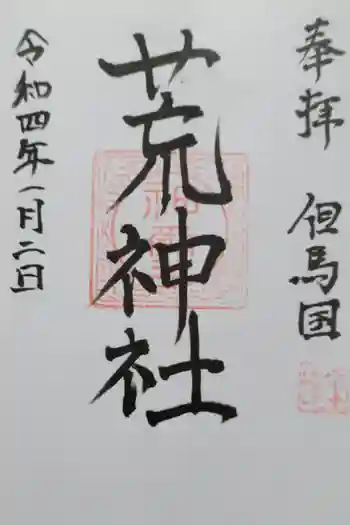 奉拝 但馬国
荒神社
令和四年一月二日